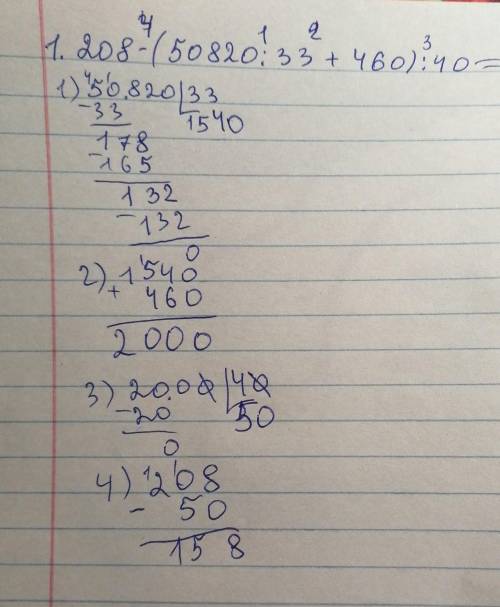 4 1 2 3
1. 208-(50820:33+460):40=
1) 50.820 33
-33 1540
178
-165
132
-132
0
2) 1540
+ 460
2000
3) 20.00 40
-20 50
0
4) 208
- 50
158